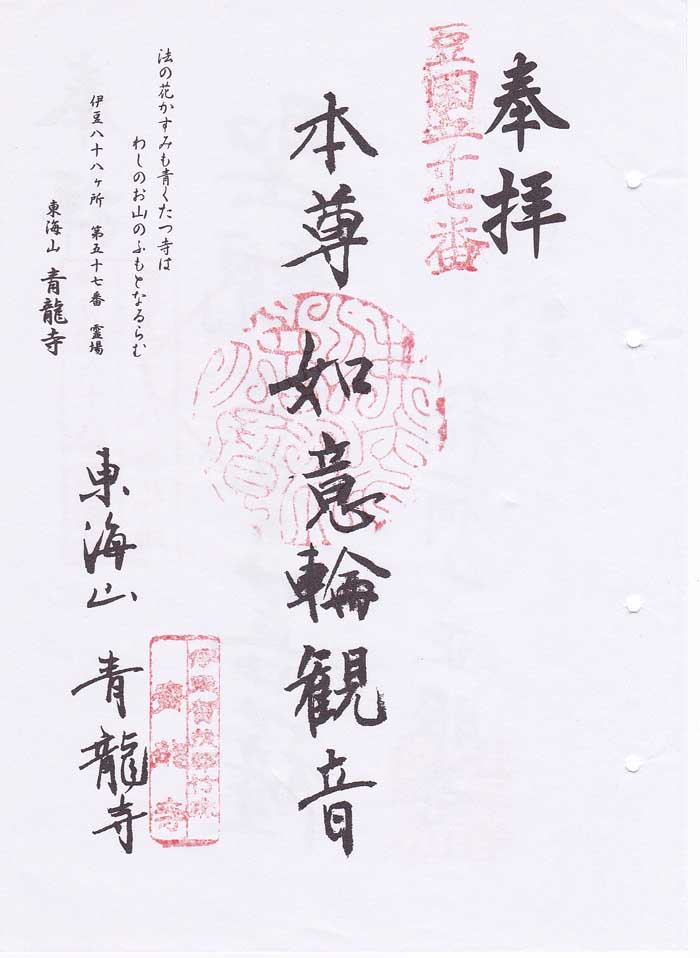 奉拝
豆国五十七番
本尊 如意輪観音
法の花かすみも青くたつ寺は
わしのお山のふもとなるらむ
伊豆八十八ヶ所 第五十七番 霊場
東海山 青龍寺
東海山 青龍寺
青龍寺